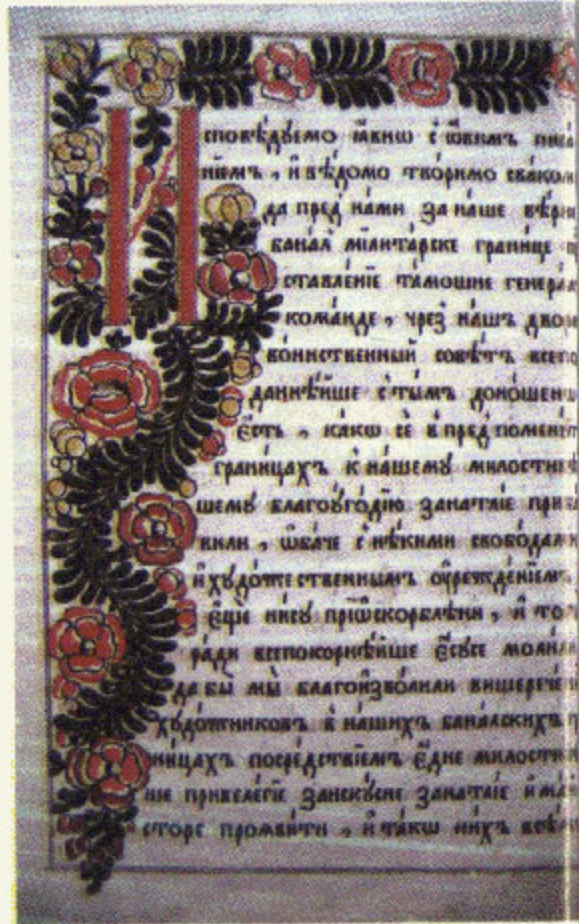 И
сповѣдуемо ꙗвнѡ с ѡвимъ писа
нїемъ, и вѣдомо творимо сваком
да пред̾ нами за наше вѣрн
банал̾ милитарске границе п
ставленїе тамошне генерал
команде, чрез̾ нашъ двор
воинственный совѣтъ всепо
даннѣйше с̾тымъ доношен
єсть, какѡ се в̾пред̾поменѹт
границахъ к̾нашемꙋ милостивѣ
шемꙋ благоꙋгодїю занатлїе приба
вили, ѡбаче с̾нѣкими свободами
и художественнымъ оучрежденїемъ,
єще нисꙋ прїѡскорблени, и то
ради всепокорнѣйше єсꙋсе молили
да бы мы благоизволили вишеречен
художниковъ в̾нашихъ баналскихъ г
ницахъ посредствїемъ єдне милости
не привелегїе заискꙋсне занатлїе и май
сторе промвити, и такѡ нихъ всем